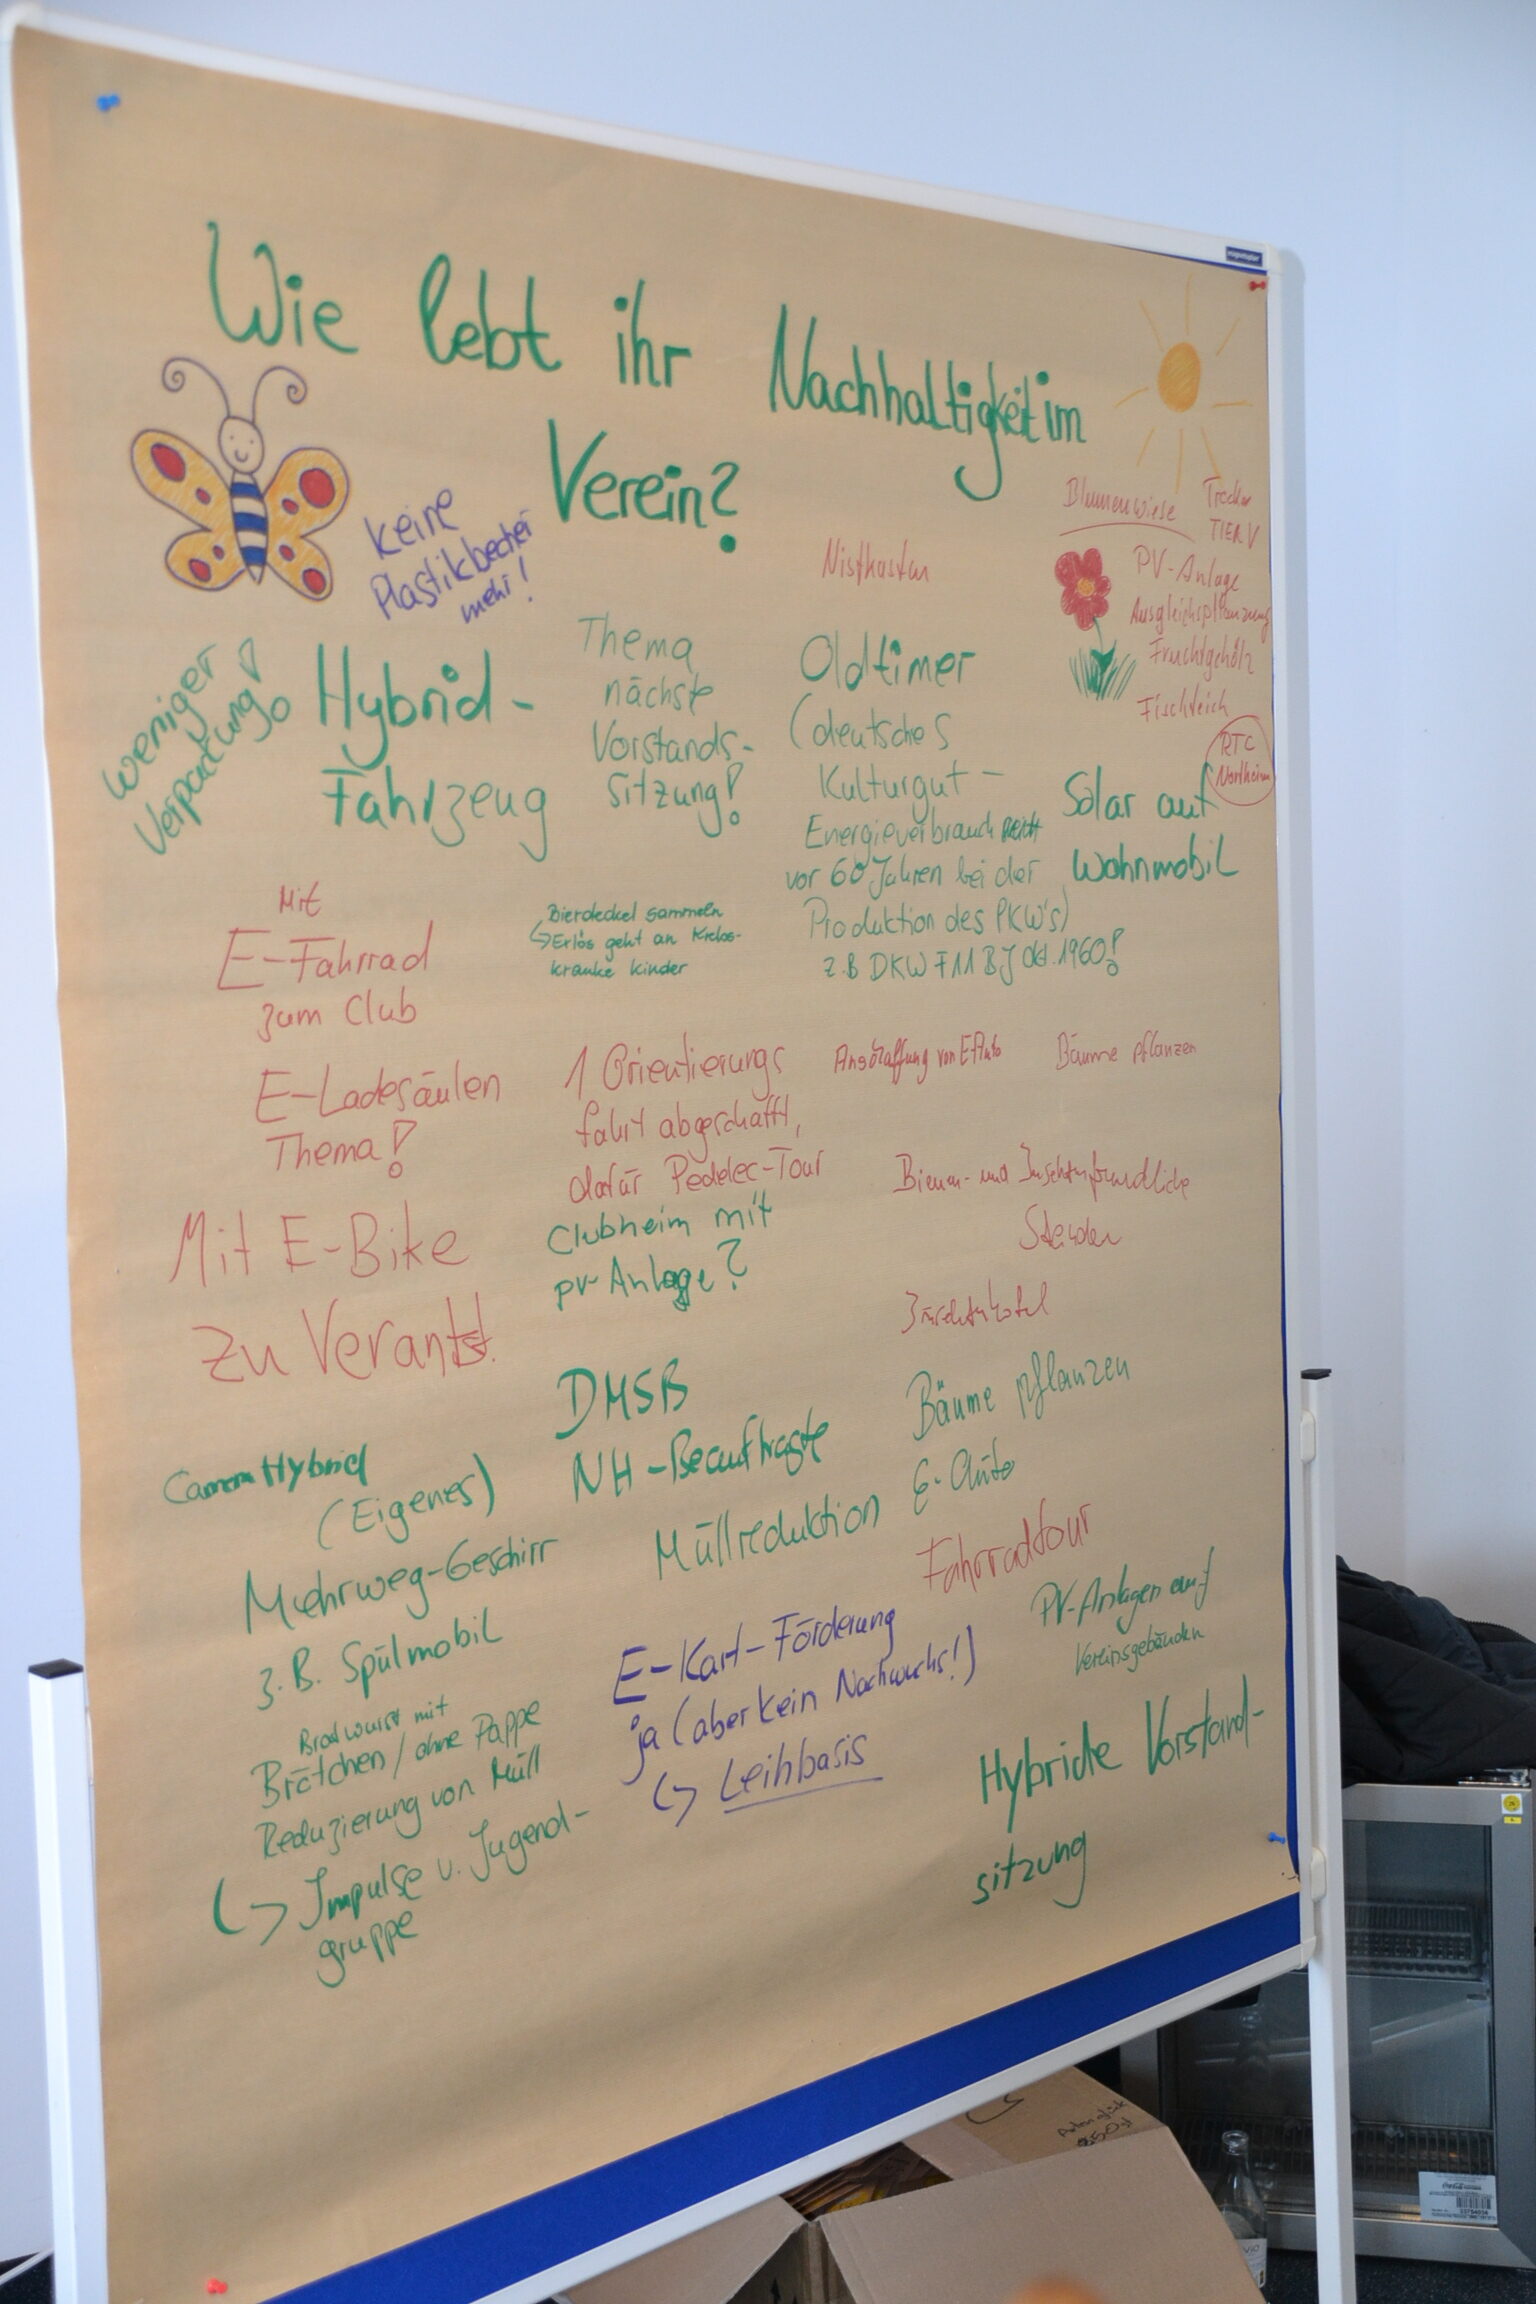 Wie lebt ihr Nachhaltigkeit im
Verein?
keine
Plastikbecher
mehr!
weniger
Verpackung!
Hybrid-
Fahrzeug
Thema
nächste
Vorstands-
sitzung!
Nistkasten
Oldtimer
(deutsches
Kulturgut -
Energieverbrauch
vor 60 Jahren bei der
Produktion des PKW's)
z.B DKW F11 BJ Okt. 1960!
Blumenwiese
Trecker
TIER V
PV-Anlage
Ausgleichspflanzung
Fruchtgehölz
Fischteich
RTC
Northeim
Solar auf
Wohnmobil
Mit
E-Fahrrad
zum Club
Bierdeckel sammeln
Erlös geht an Krebs-
kranke Kinder
E-Ladesäulen
Thema!
1 Orientierungs
fahrt abgeschafft,
dafür Pedelec-Tour
Anschaffung von E Auto
Bäume pflanzen
Bienen- und Insektenfreundliche
Stauden
Insektenhotel
Mit E-Bike
zu Veranst.
Clubheim mit
PV-Anlage?
DMSB
NH-Beauftragte
Müllreduktion
Bäume pflanzen
E-Auto
Fahrradtour
PV-Anlagen auf
Vereinsgebäuden
Hybrid
(Eigenes)
Mehrweg-Geschirr
z.B. Spülmobil
Bratwurst mit
Brötchen / ohne Pappe
Reduzierung von Müll
Impulse v. Jugend-
gruppe
E-Kart-Förderung
ja (aber kein Nachwuchs!)
Leihbasis
Hybride Vorstand-
sitzung